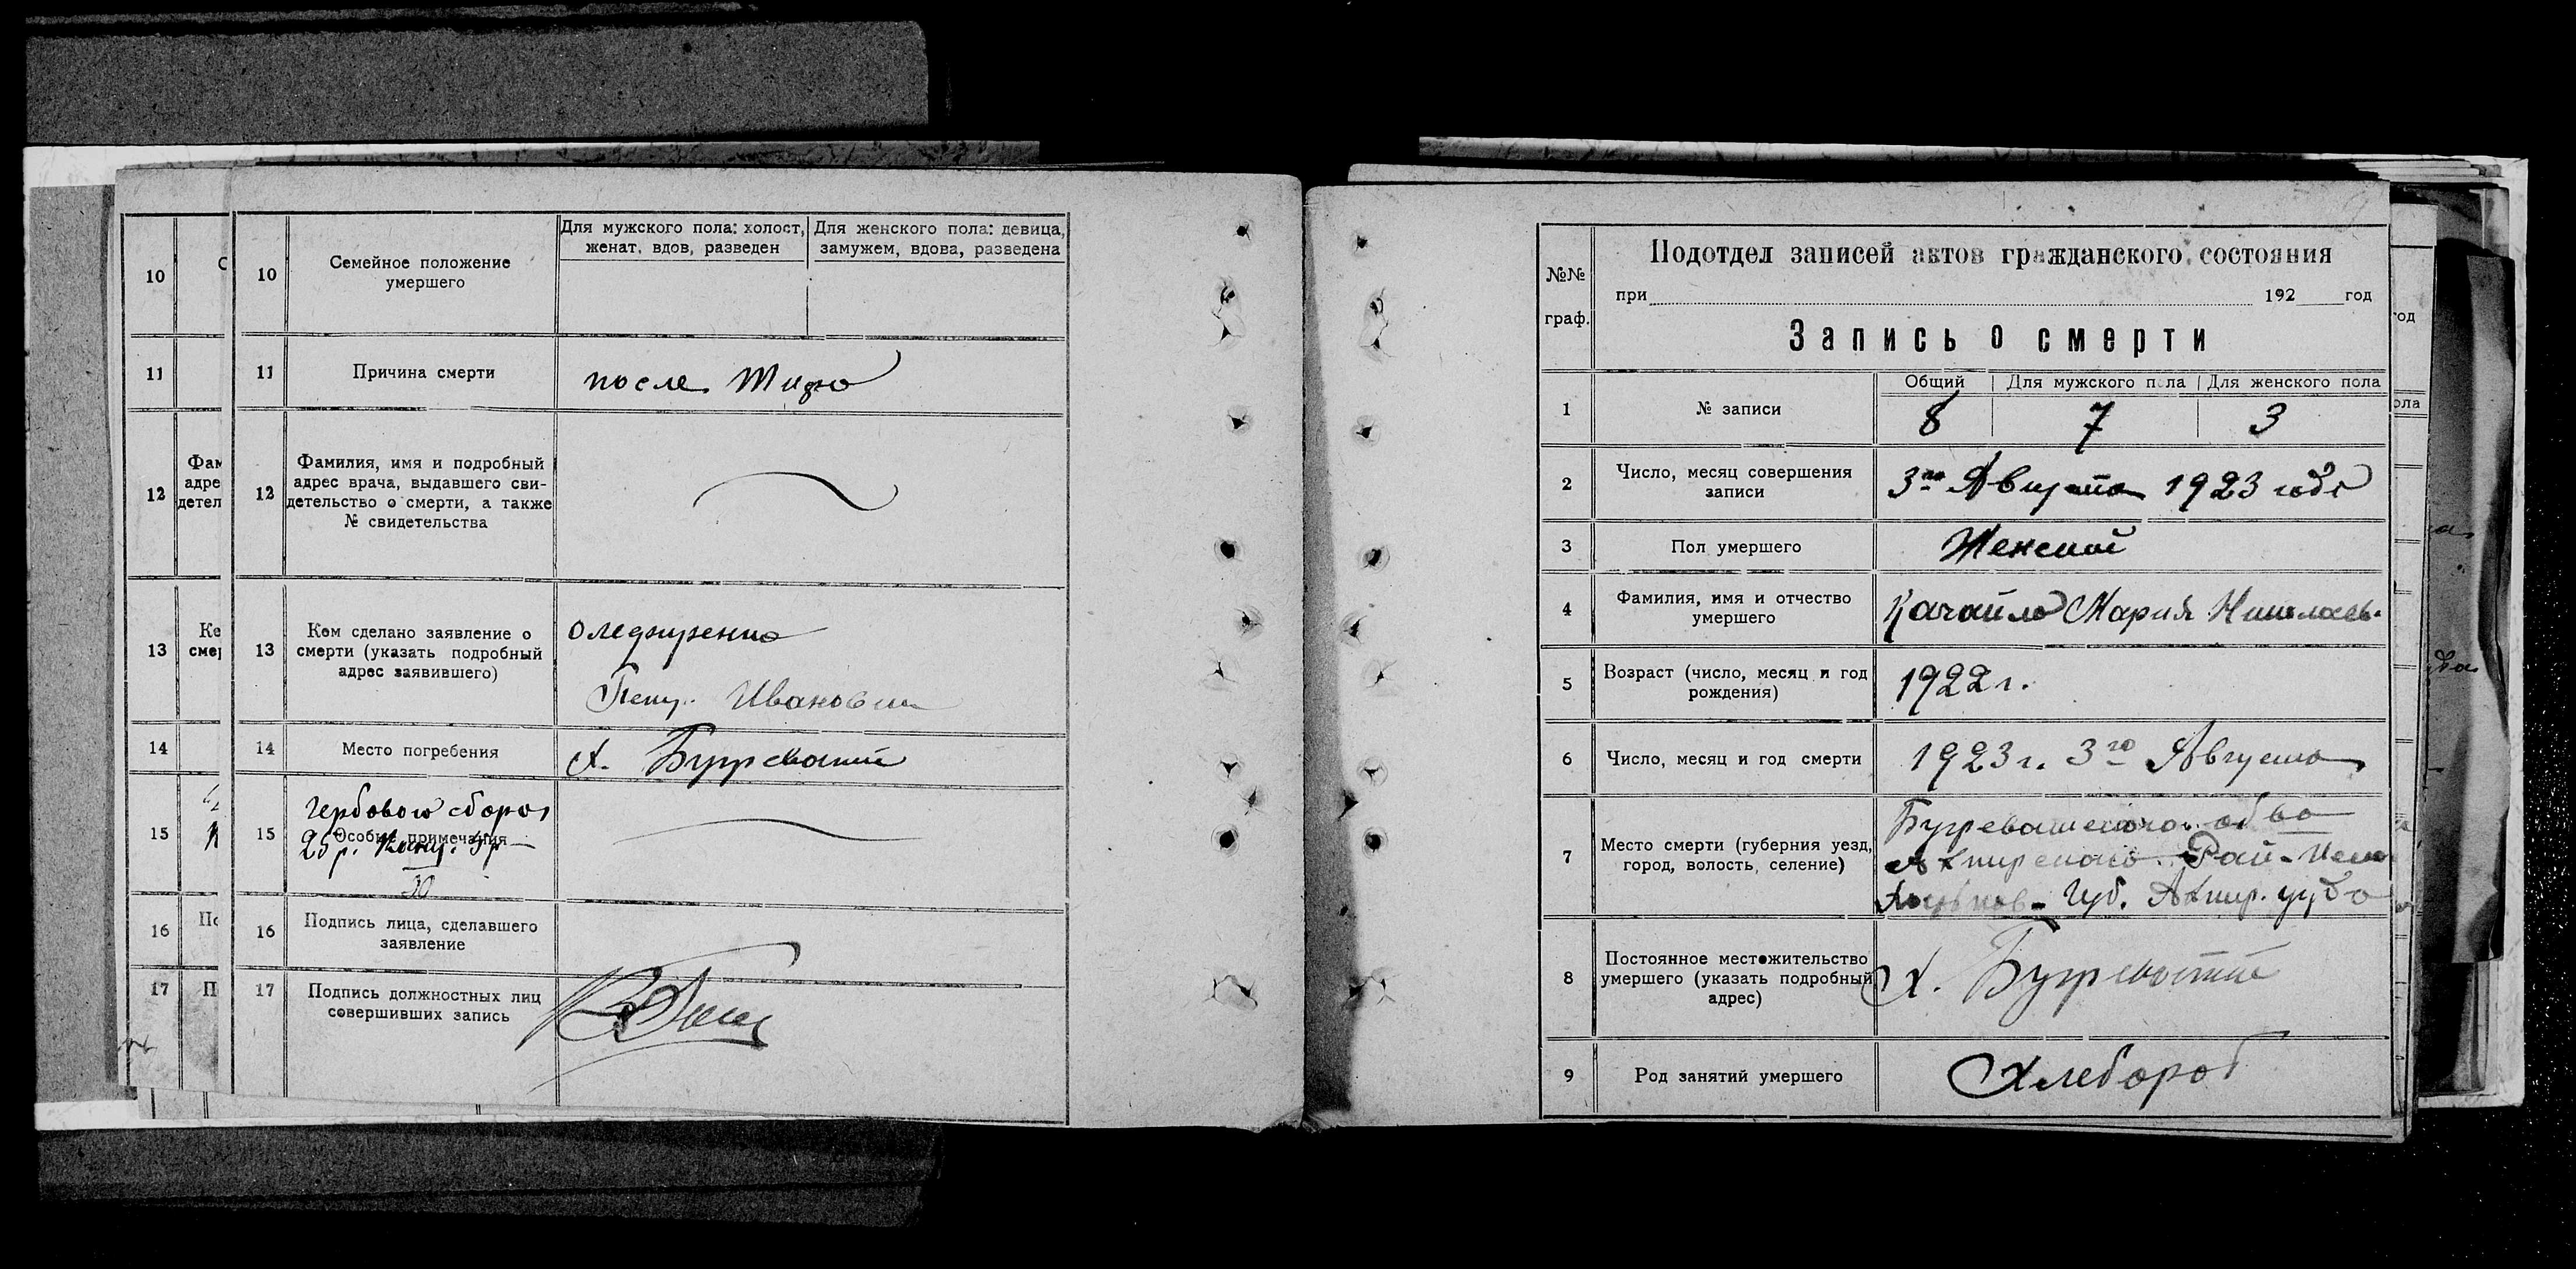 10
10
Семейное положение
умершего
Для мужского пола: холост,
женат, вдов, разведен
Для женского пола: девица,
замужем, вдова, разведена
11
11
Причина смерти
после
12
Фам
адре
детел
12
Фамилия, имя и подробный
адрес врача, выдавшего сви-
детельство о смерти, а также
№ свидетельства
13
Ке
смер
13
Кем сделано заявление о
смерти (указать подробный
адрес заявившего)
14
14
Место погребения
х.
15
15
Гербового сбора
Особые примечания
25 р.
50
16
По
16
Подпись лица, сделавшего
заявление
17
П
17
Подпись должностных лиц
совершивших запись
№№
граф.
Подотдел записей актов гражданского состояния
при 192 год
Запись о смерти
1
№ записи
Общий
Для мужского пола
Для женского пола
8 7 3
2
Число, месяц совершения
записи
3го Августа 1923 года
3
Пол умершего
Женский
4
Фамилия, имя и отчество
умершего
Качайло Мария Николаев.
5
Возраст (число, месяц и год
рождения)
1922 г.
6
Число, месяц и год смерти
1923 г. 3го Августа
7
Место смерти (губерния уезд,
город, волость, селение)
Губ. Ахтир.
8
Постоянное местожительство
умершего (указать подробный
адрес)
х.
9
Род занятий умершего
Хлебороб
год
ола